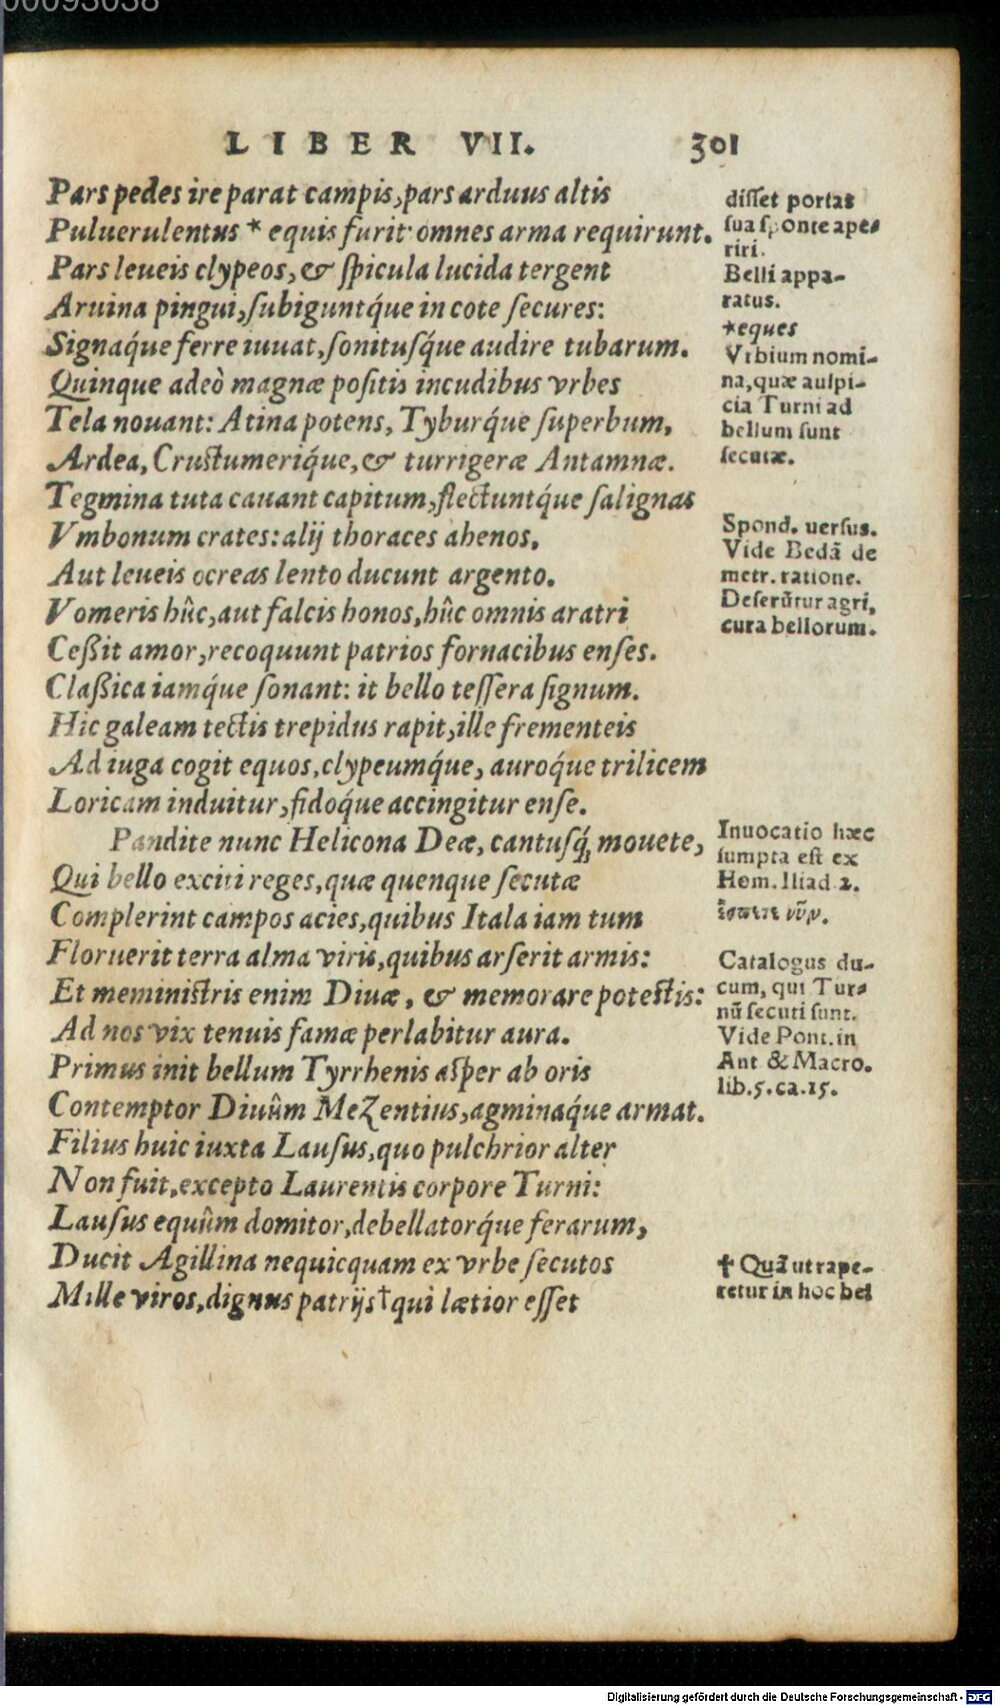 00093038
LIBER VII. 301
Pars pedes ire parat campis, pars arduus altis
Puluerulentus * equis furit: omnes arma requirunt.
Pars leueis clypeos, & spicula lucida tergent
Aruina pingui, subiguntq́ue in cote secures:
Signaq́ue ferre iuuat, sonitusq́ue audire tubarum.
Quinque adeò magnæ positis incudibus vrbes
Tela nouant: Atina potens, Tyburq́ue superbum,
Ardea, Crustumeriq́ue, & turrigeræ Antamnæ.
Tegmina tuta cauant capitum, flectuntq́ue salignas
Vmbonum crates: alij thoraces ahenos,
Aut leueis ocreas lento ducunt argento.
Vomeris hûc, aut falcis honos, hûc omnis aratri
Ceßit amor, recoquunt patrios fornacibus enses.
Claßica iamq́ue sonant: it bello tessera signum.
Hic galeam tectis trepidus rapit, ille frementeis
Ad iuga cogit equos, clypeumq́ue, auroq́ue trilicem
Loricam induitur, fidoq́ue accingitur ense.
Pandite nunc Helicona Deæ, cantusq́; mouete,
Qui bello exciti reges, quæ quenque secutæ
Complerint campos acies, quibus Itala iam tum
Floruerit terra alma viris, quibus arserit armis:
Et meministris enim Diuæ, & memorare potestis:
Ad nos vix tenuis famæ perlabitur aura.
Primus init bellum Tyrrhenis asper ab oris
Contemptor Diuûm Mezentius, agminaq́ue armat.
Filius huic iuxta Lausus, quo pulchrior alter
Non fuit, excepto Laurentis corpore Turni:
Lausus equûm domitor, debellatorq́ue ferarum,
Ducit Agillina nequicquam ex vrbe secutos
Mille viros, dignus patrijs † qui lætior esset
disset portas
sua sponte ape-
riri.
Belli appa-
ratus.
*eques
Vrbium nomi-
na, quæ auspi-
cia Turni ad
bellum sunt
secutæ.
Spond. uersus.
Vide Bedã de
metr. ratione.
Deserũtur agri,
cura bellorum.
Inuocatio hæc
sumpta est ex
Hom. Iliad 2.
ἔσπετε νῦν.
Catalogus du-
cum, qui Tur-
nũ secuti sunt.
Vide Pont. in
Ant & Macro.
lib. 5. ca. 15.
† Quã ut rape-
retur in hoc bel
Digitalisierung gefördert durch die Deutsche Forschungsgemeinschaft - DFG